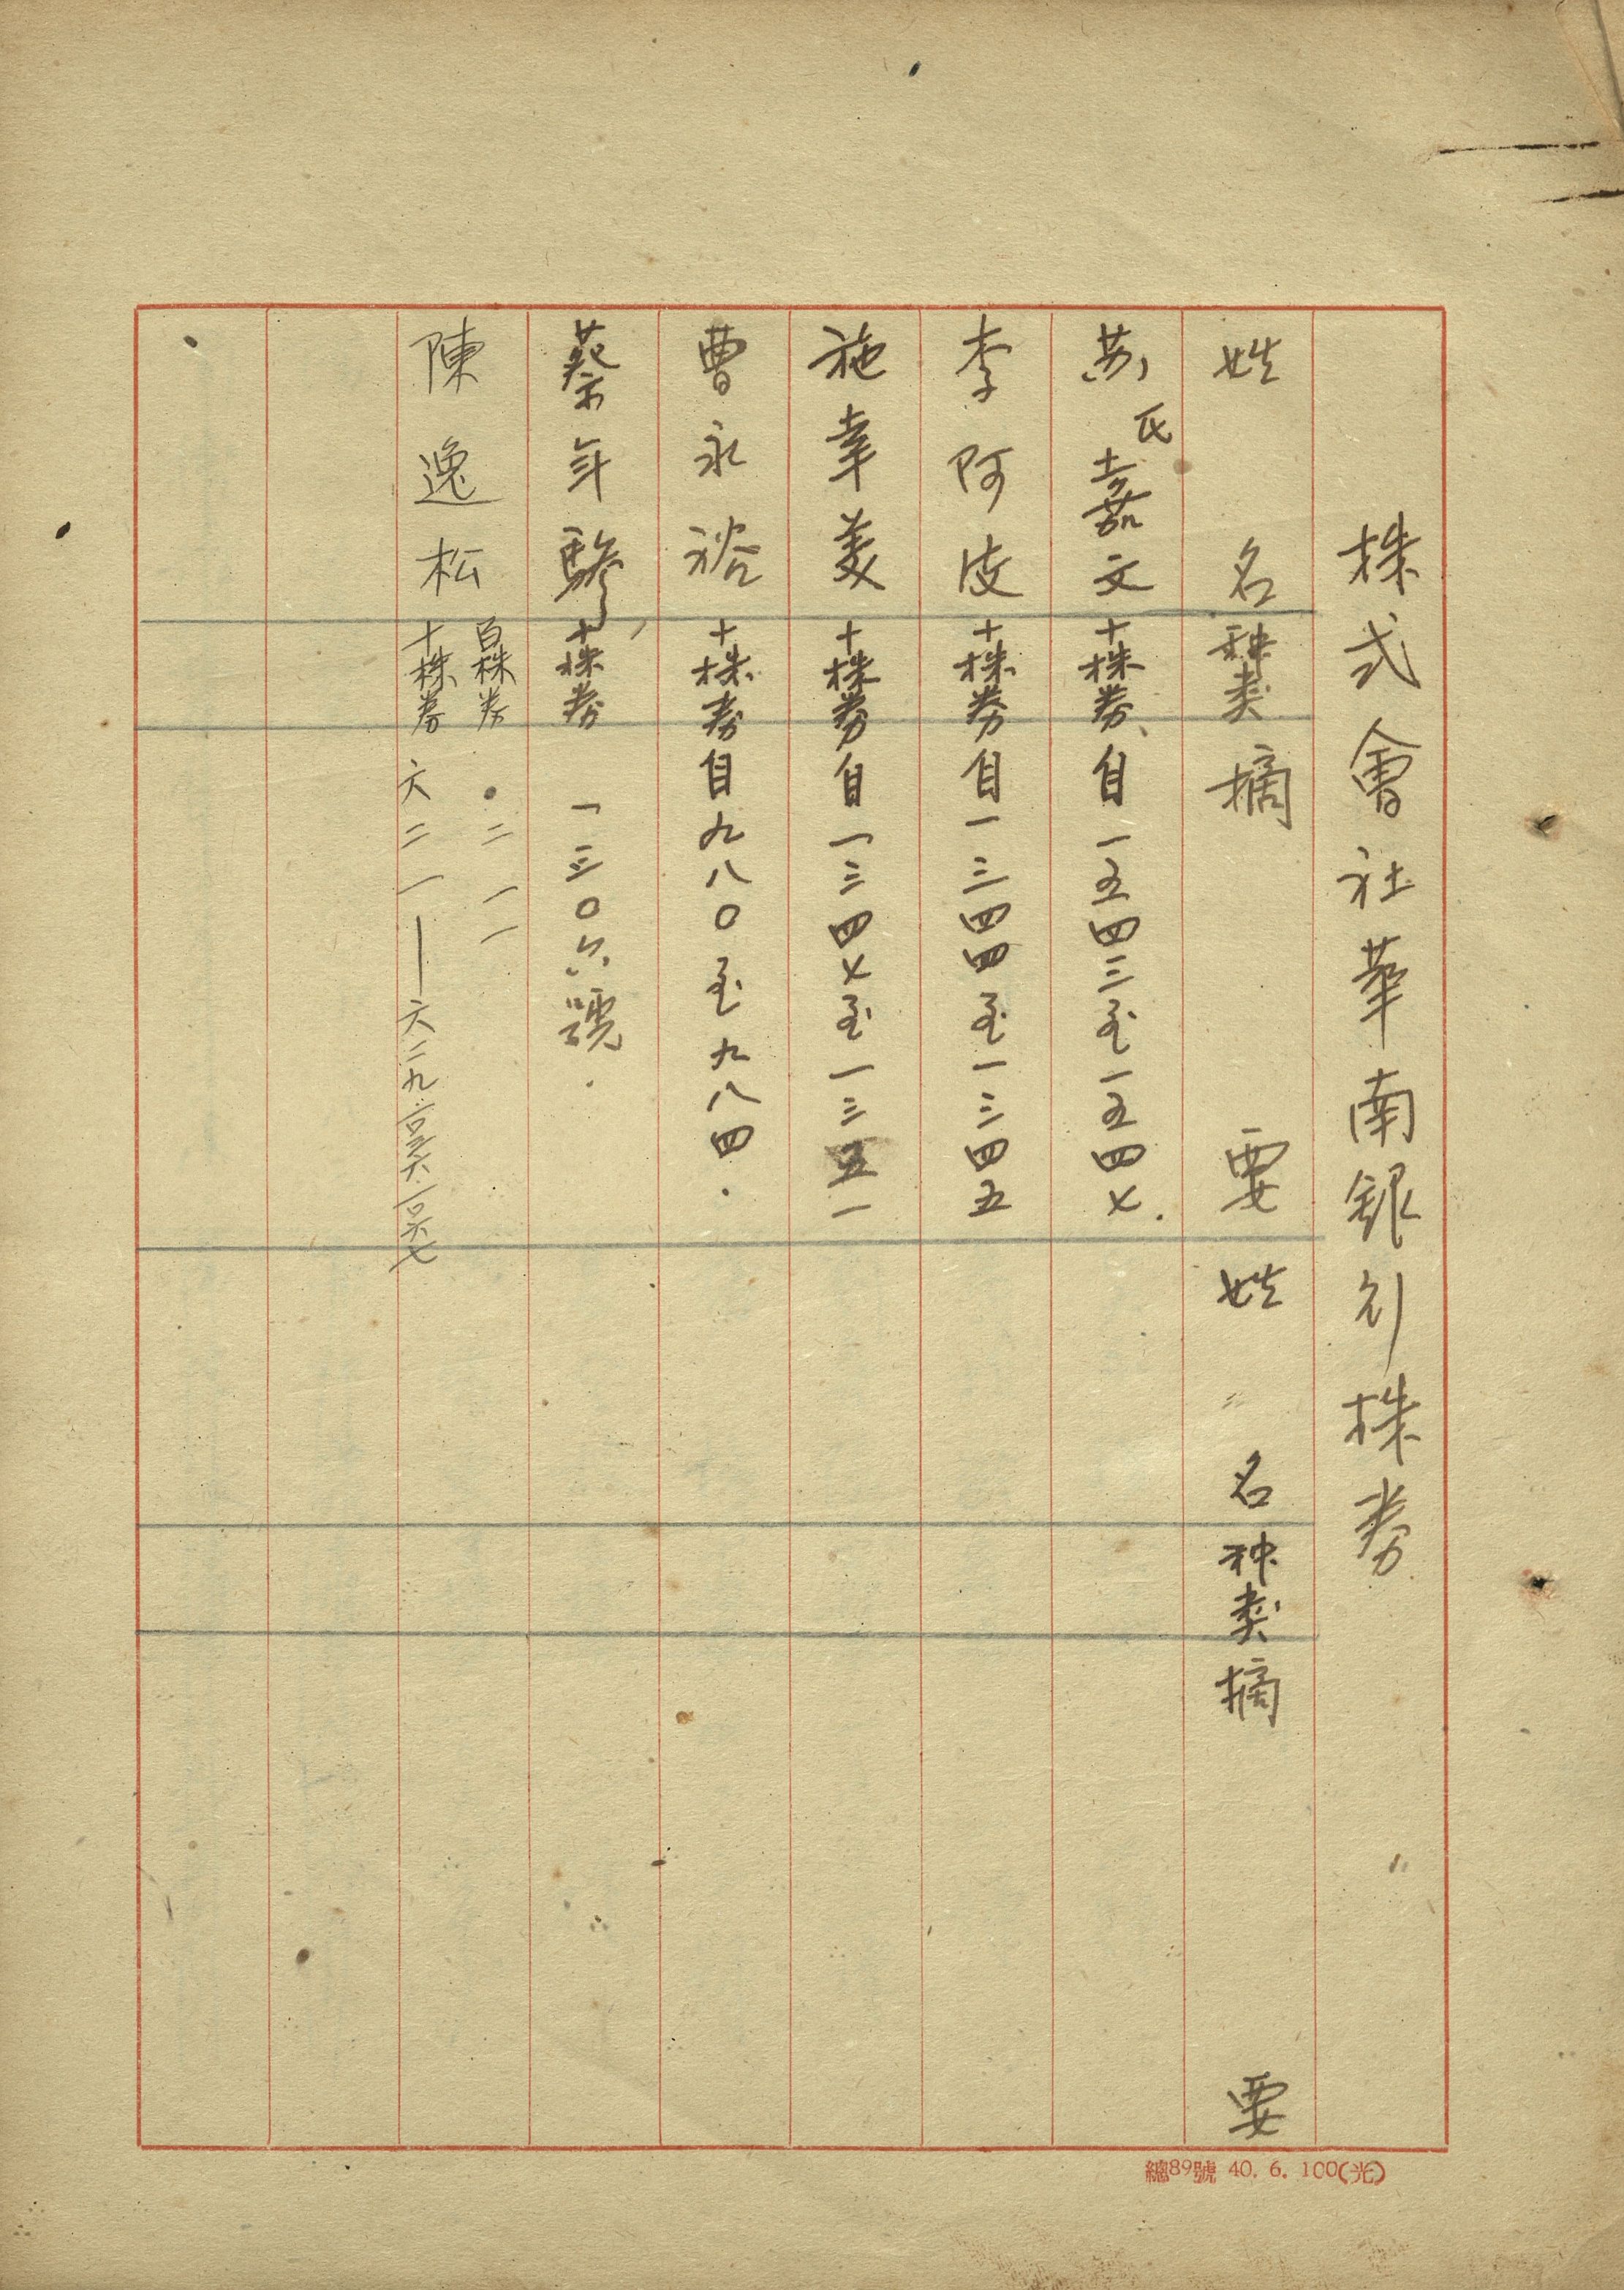 株式會社華南銀行株券
姓名 种类 摘要 姓名 种类 摘要
苏氏嘉文 十株券、自一五四三至一五四七.
李阿皮 十株券 自一三四四至一三四五
施幸美 十株券 自一三四七至一三五一
曹永裕 十株券 自九八〇至九八四.
蔡年 十株券 一三〇六號.
陳逸松 百株券 二一一
十株券 六二一—六二九
總89號 40.6.100(光)